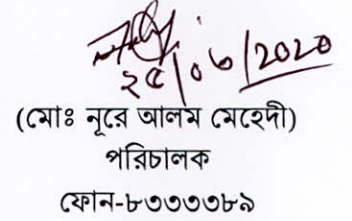 ২৫/০৬/২০২০
(মোঃ নূরে আলম মেহেদী)
পরিচালক
ফোন-৮৩৩৩৩৮৯